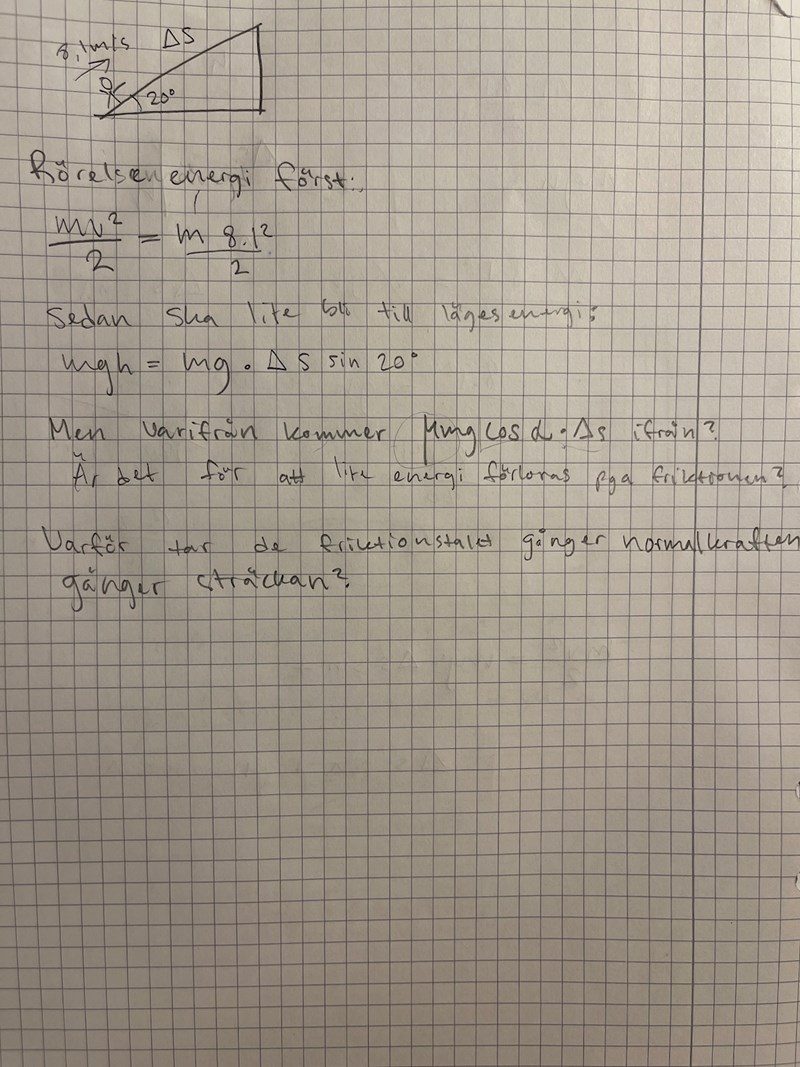 8,1m/s ΔS
20°
Rörelsenenergi först:
mv²/2 = m 8.1²/2
Sedan ska lite bli till lägesenergi:
mgh = mg · ΔS sin 20°
Men varifrån kommer μmg cos α · Δs ifrån?
Är det för att lite energi förloras pga friktionen?
Varför tar de friktionstalet gånger normalkraften
gånger sträckan?